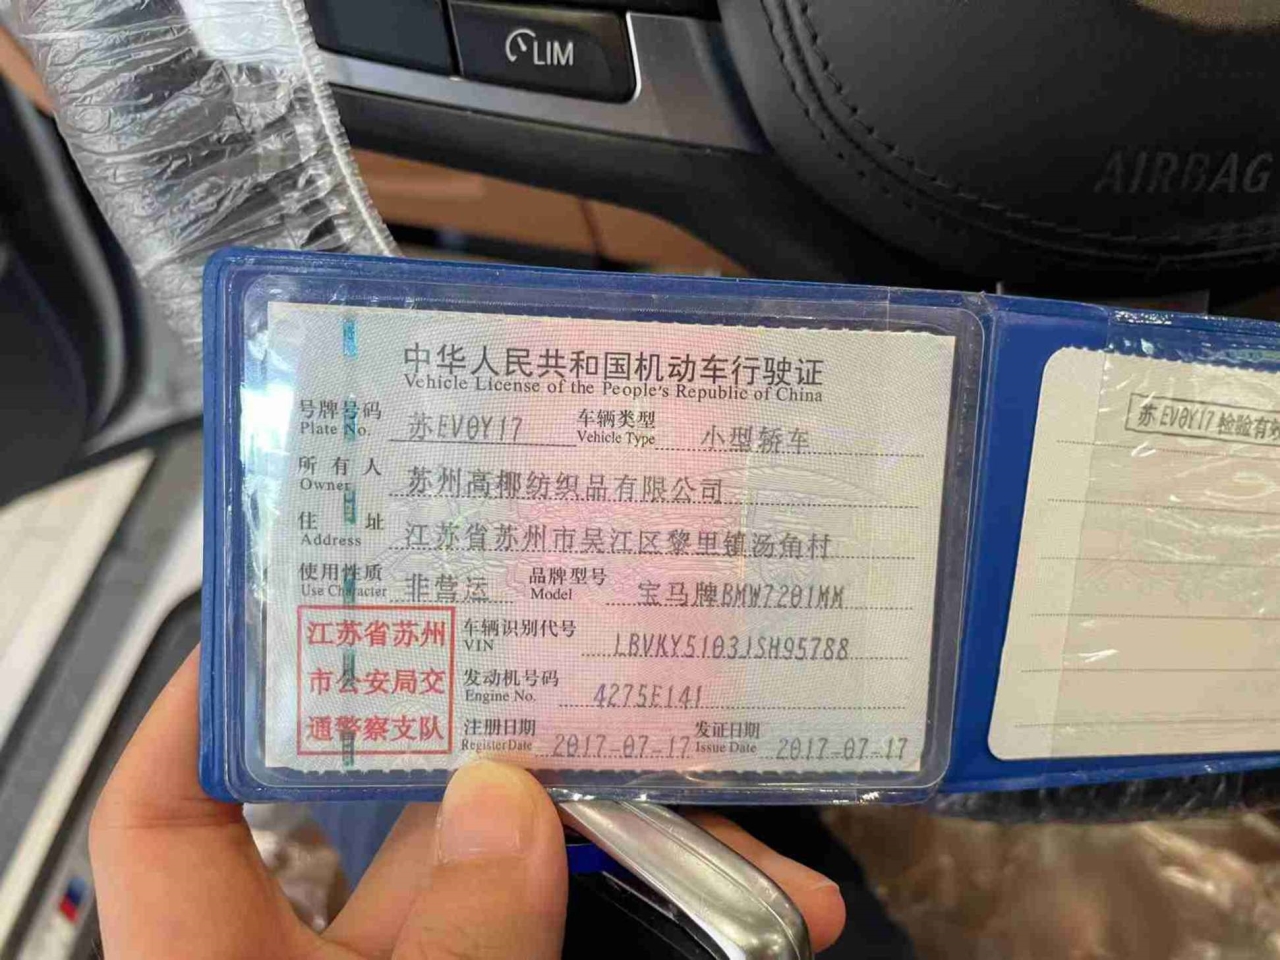 LIM
AIRBAG
中华人民共和国机动车行驶证
Vehicle License of the People's Republic of China
号牌号码 苏EV0Y17 车辆类型 小型轿车
Plate No. Vehicle Type
所有人 苏州高椰纺织品有限公司
Owner
住址 江苏省苏州市吴江区黎里镇汤角村
Address
使用性质 非营运 品牌型号 宝马牌BMW7201MM
Use Character Model
江苏省苏州
市公安局交
通警察支队
车辆识别代号 LBVKY5103JSH95788
VIN
发动机号码 4275E141
Engine No.
注册日期 2017-07-17 发证日期 2017-07-17
Register Date Issue Date
苏EV0Y17 检验有